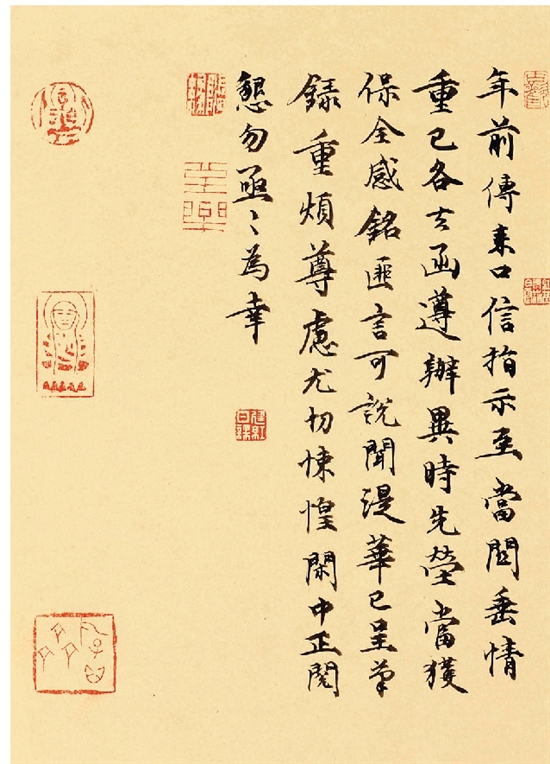 年前傳来口信指示至當垂情
重已各去函遵辦異時先塋當獲
保全感銘匪言可說聞湜華已呈草
錄重煩尊慮尤切悚惶閑中正閱
懇勿亟〻為幸